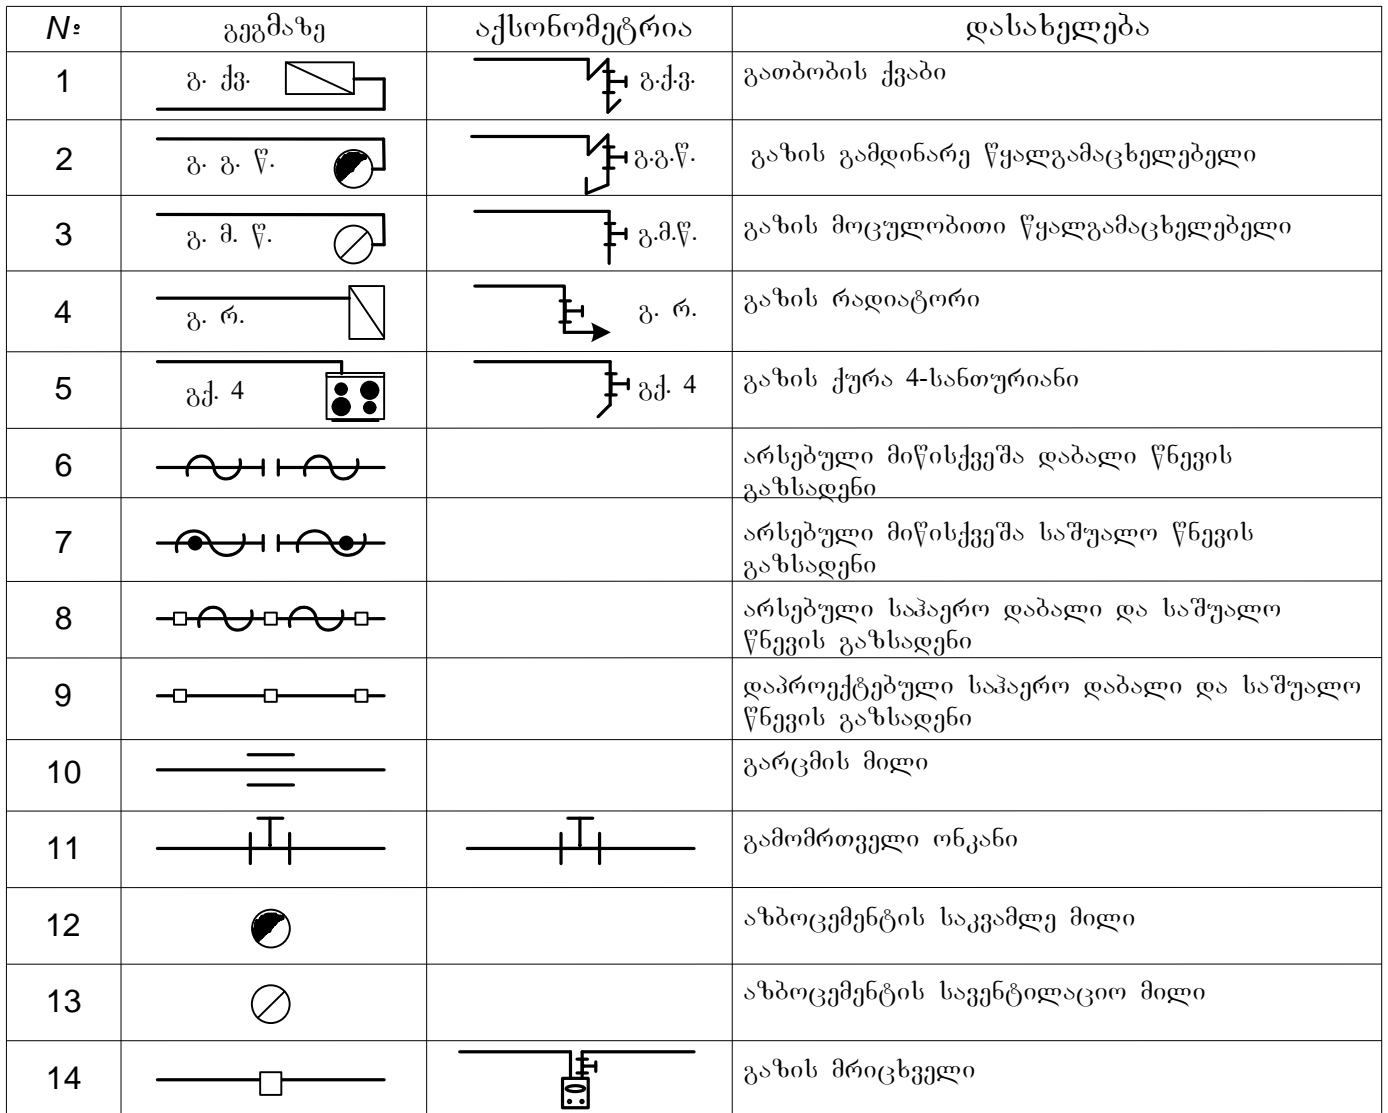 № გეგმაზე აქსონომეტრია დასახელება
1 გ. ქვ. გ.ქ.ვ. გათბობის ქვაბი
2 გ. გ. წ. გ.გ.წ. გაზის გამდინარე წყალგამაცხელებელი
3 გ. მ. წ. გ.მ.წ. გაზის მოცულობითი წყალგამაცხელებელი
4 გ. რ. გ. რ. გაზის რადიატორი
5 გქ. 4 გქ. 4 გაზის ქურა 4-სანთურიანი
6 არსებული მიწისქვეშა დაბალი წნევის
გაზსადენი
7 არსებული მიწისქვეშა საშუალო წნევის
გაზსადენი
8 არსებული საჰაერო დაბალი და საშუალო
წნევის გაზსადენი
9 დაპროექტებული საჰაერო დაბალი და საშუალო
წნევის გაზსადენი
10 გარცმის მილი
11 გამომრთველი ონკანი
12 აზბოცემენტის საკვამლე მილი
13 აზბოცემენტის სავენტილაციო მილი
14 გაზის მრიცხველი